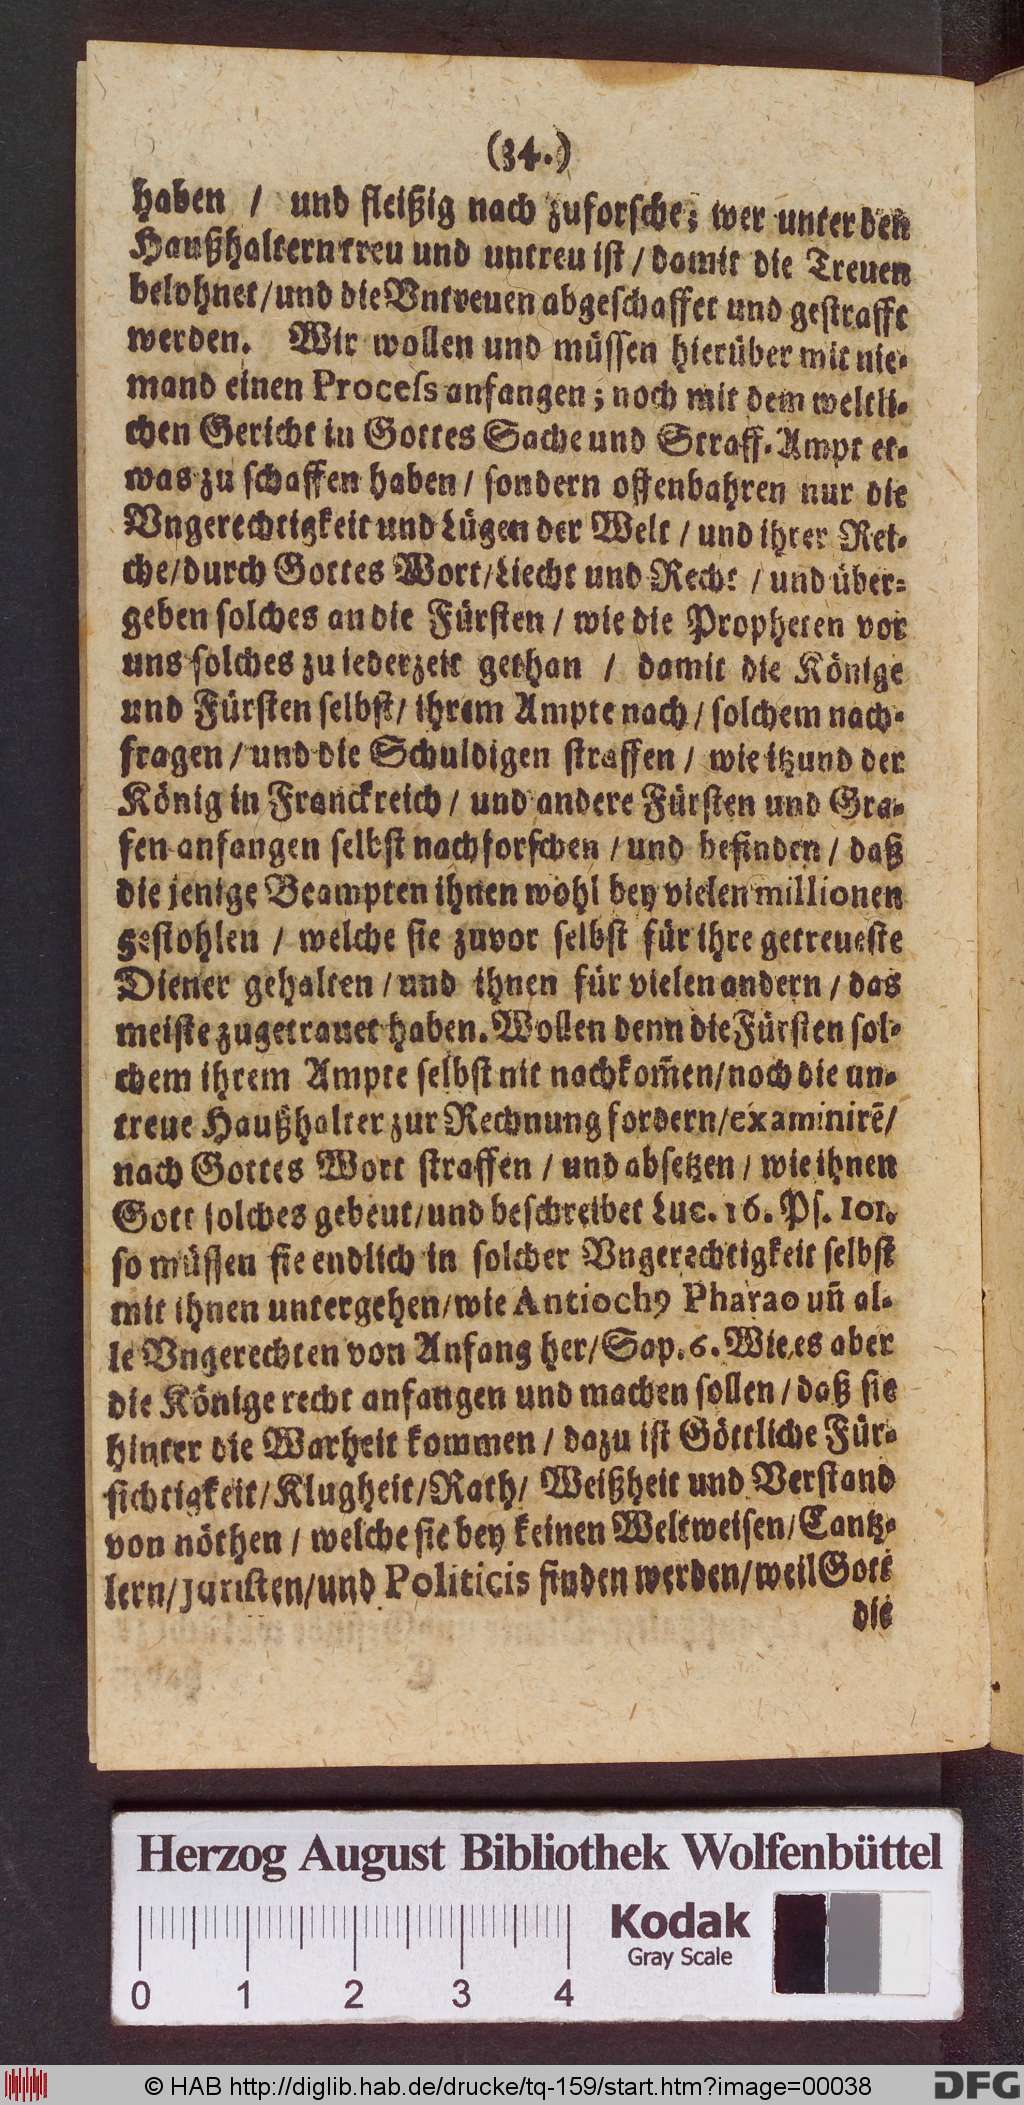 (34.)
haben / und fleißig nach zuforsche; wer unter den
Haußhaltern treu und untreu ist / damit die Treuen
belohnet / und die Vntreuen abgeschaffet und gestrafft
werden. Wir wollen und müssen hierüber mit nie-
mand einen Process anfangen; noch mit dem weltli-
chen Gericht in Gottes Sache und Straff-Ampt et-
was zu schaffen haben / sondern offenbahren nur die
Vngerechtigkeit und Lügen der Welt / und ihrer Rei-
che / durch Gottes Wort / Liecht und Recht / und über-
geben solches an die Fürsten / wie die Propheten vor
uns solches zu iederzeit gethan / damit die Könige
und Fürsten selbst / ihrem Ampte nach / solchem nach-
fragen / und die Schuldigen straffen / wie itzund der
König in Franckreich / und andere Fürsten und Gra-
fen anfangen selbst nachforschen / und befinden / daß
die jenige Beampten ihnen wohl bey vielen millionen
gestohlen / welche sie zuvor selbst für ihre getreueste
Diener gehalten / und ihnen für vielen andern / das
meiste zugetrauet haben. Wollen denn die Fürsten sol-
chem ihrem Ampte selbst nit nachkom̃en / noch die un-
treue Haußhalter zur Rechnung fordern / examinirẽ /
nach Gottes Wort straffen / und absetzen / wie ihnen
Gott solches gebeut / und beschreibet Luc. 16. Ps. 101.
so müssen sie endlich in solcher Vngerechtigkeit selbst
mit ihnen untergehen / wie Antiochꝰ Pharao uñ al-
le Vngerechten von Anfang her / Sap. 6. Wie es aber
die Könige recht anfangen und machen sollen / daß sie
hinter die Warheit kommen / dazu ist Göttliche Für-
sichtigkeit / Klugheit / Rath / Weißheit und Verstand
von nöthen / welche sie bey keinen Weltweisen / Cantz-
lern / Juristen / und Politicis finden werden / weil Gott
die
Herzog August Bibliothek Wolfenbüttel
Kodak
Gray Scale
0 1 2 3 4
© HAB http://diglib.hab.de/drucke/tq-159/start.htm?image=00038
DFG